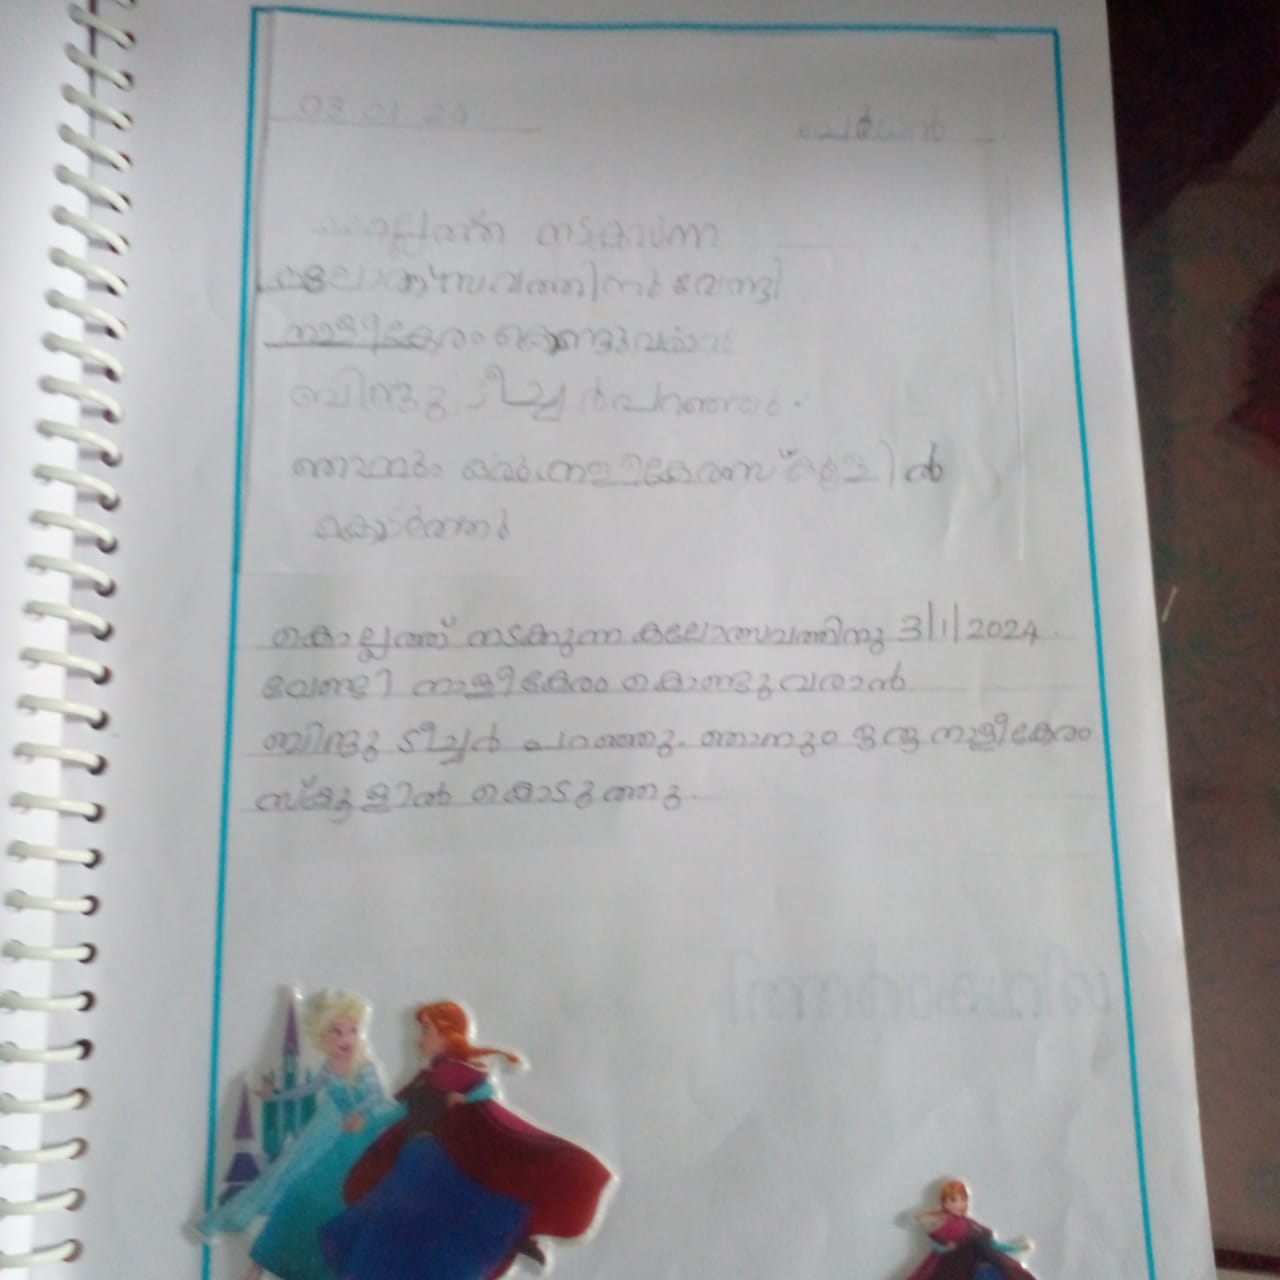 03 01 24
നടകുന്ന
വേണ്ടി
നാളീകേരം കൊണ്ടുവരാന
ബിന്ദു ടീച്ചർ പറഞ്ഞു.
ഞാനും ഒരു നാളീകേരം
കൊടുത്തു
കൊല്ലത്ത് നടക്കുന്ന കലോത്സവത്തിനു 3/1/2024
വേണ്ടി നാളീകേരം കൊണ്ടുവരാൻ
ബിന്ദു ടീച്ചർ പറഞ്ഞു. ഞാനും ഒരു നാളീകേരം
സ്കൂളിൽ കൊടുത്തു.